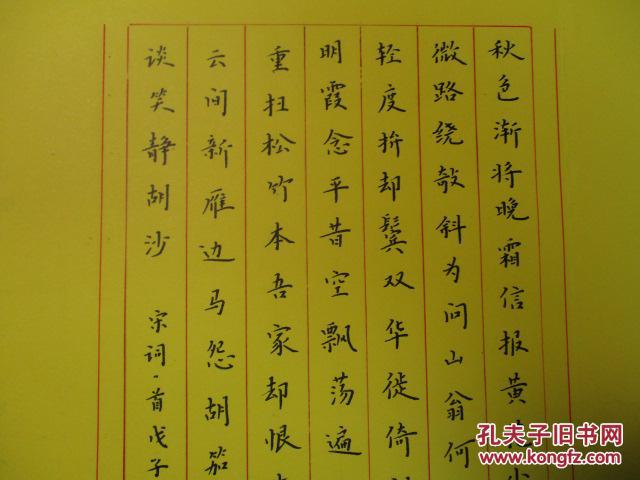 秋色渐将晚霜信报黄
微路绕敧斜为问山翁何
轻度拚却鬓双华徙倚
明霞念平昔空飘荡遍
重扫松竹本吾家却恨
云间新雁边马怨胡笳
谈笑静胡沙 宋词一首戊子
孔夫子旧书网
www.kongfz.com